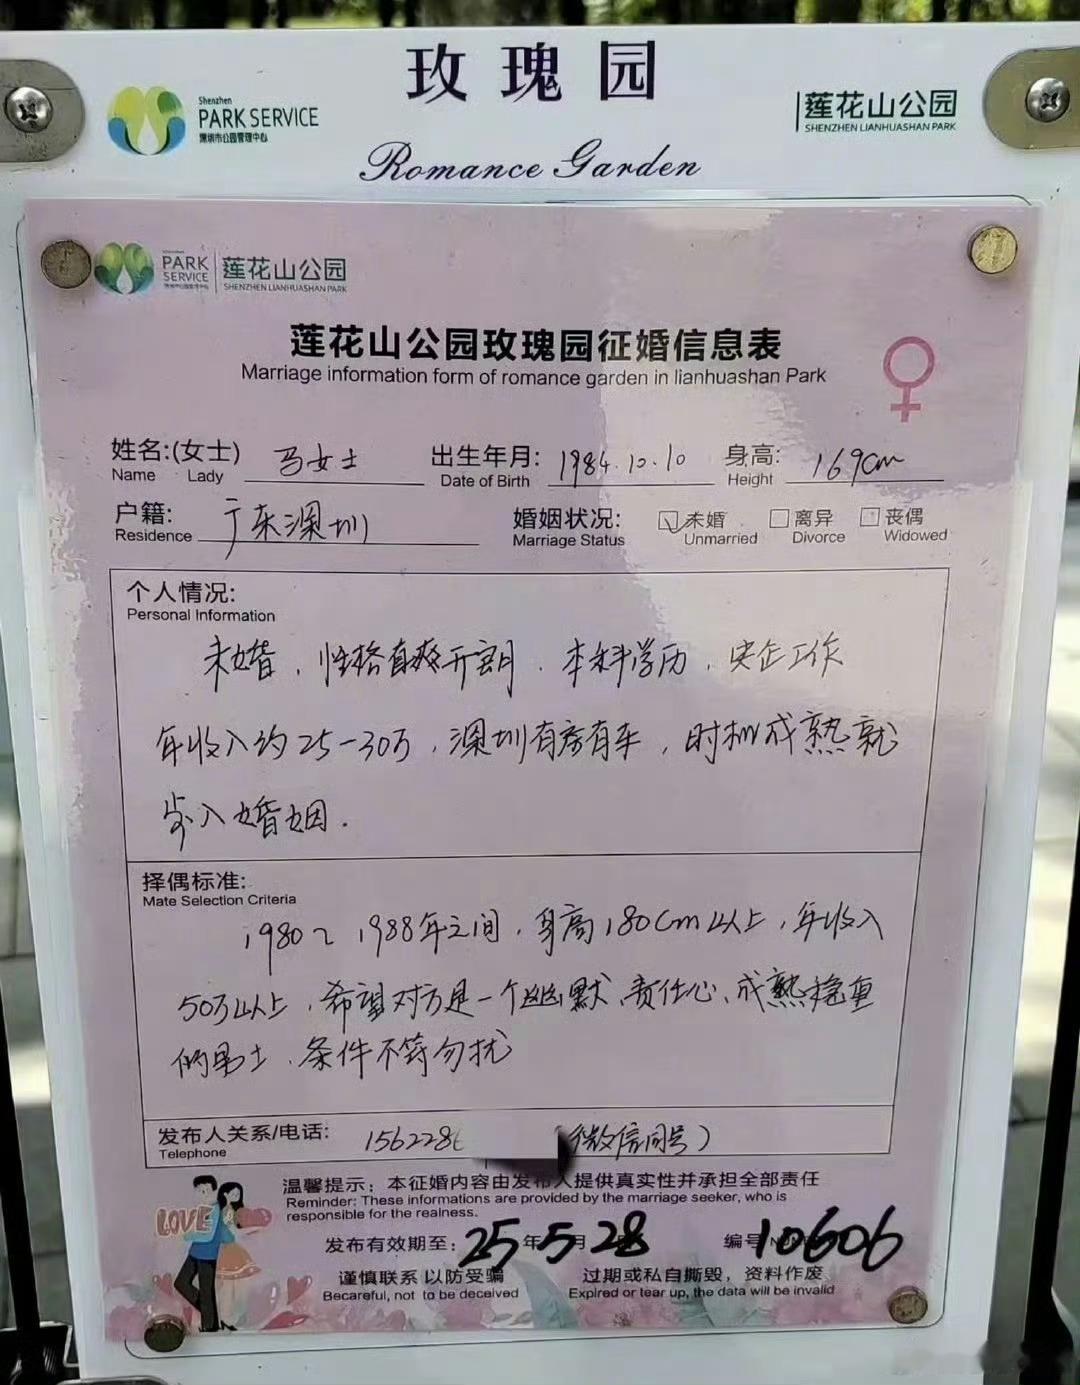 玫瑰园
Shenzhen
PARK SERVICE
深圳市公园管理中心
莲花山公园
SHENZHEN LIANHUASHAN PARK
Romance Garden
PARK SERVICE
莲花山公园
SHENZHEN LIANHUASHAN PARK
莲花山公园玫瑰园征婚信息表
Marriage information form of romance garden in lianhuashan Park
姓名:(女士) 马女士 出生年月: 1984.10.10 身高: 169cm
Name Lady Date of Birth Height
户籍: 广东深圳 婚姻状况: 未婚 离异 丧偶
Residence Marriage Status Unmarried Divorce Widowed
个人情况:
Personal Information
未婚，性格直爽开朗．本科学历，央企工作
年收入约25-30万，深圳有房有车，时机成熟就
步入婚姻．
择偶标准:
Mate Selection Criteria
1980~1988年之间，身高180cm以上，年收入
50万以上，希望对方是一个幽默、责任心、成熟稳重
的男士、条件不符勿扰
发布人关系/电话: 1562286 (微信同号)
Telephone
温馨提示：本征婚内容由发布人提供真实性并承担全部责任
Reminder: These informations are provided by the marriage seeker, who is
responsible for the realness.
LOVE
发布有效期至: 25年5月28 编号 10606
谨慎联系 以防受骗 过期或私自撕毁，资料作废
Becareful, not to be deceived Expired or tear up, the data will be invalid